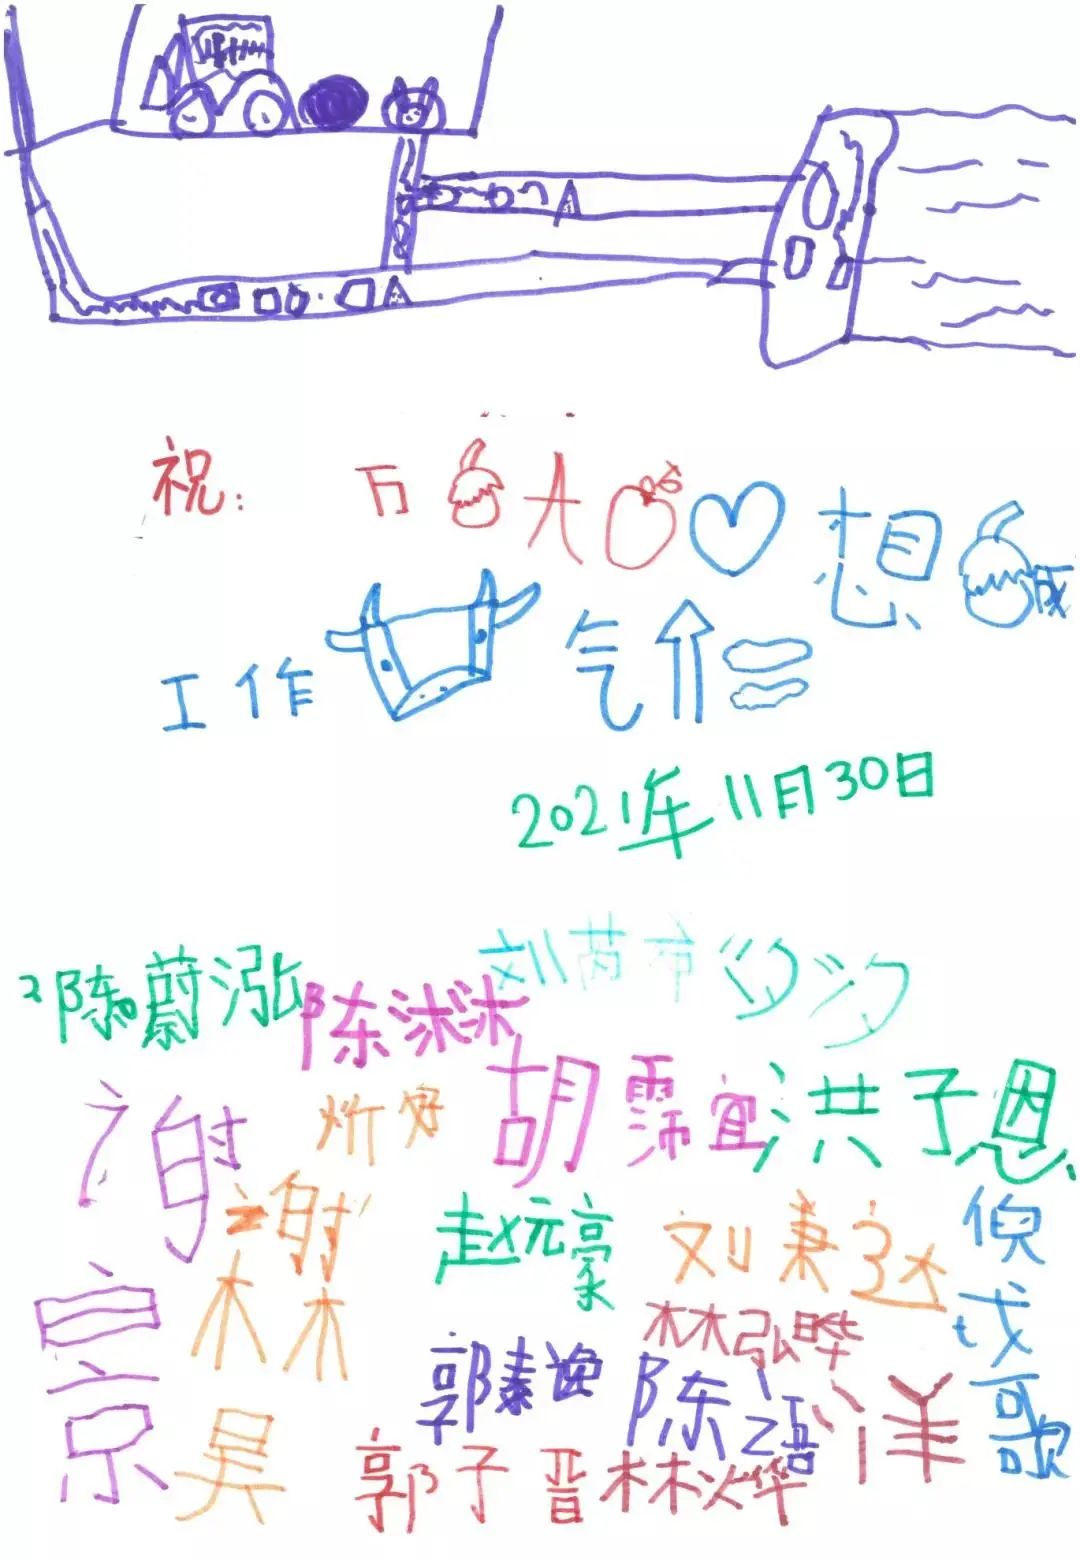 祝: 万 大 想 成
工作 气
2021年11月30日
陈蔚泓 刘芮
陈沐沐
胡霈宜 洪子恩
谢 景
炘妤
谢林昊
赵元豪 刘兼达
林弘晔
郭秦逸 陈语洋
郭子晋 林烨
倪戈歌